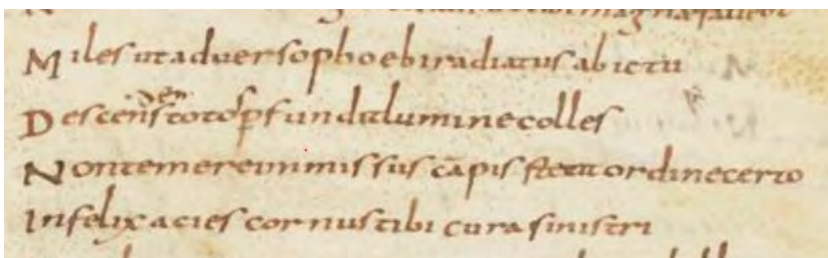 Miles ut adverso phoebi radiatus ab ictu
Descens totos ꝑfundit lumine colles
Non temere inmissus cāpis stetit ordine certo
Infelix acies cornus tibi cura sinistri